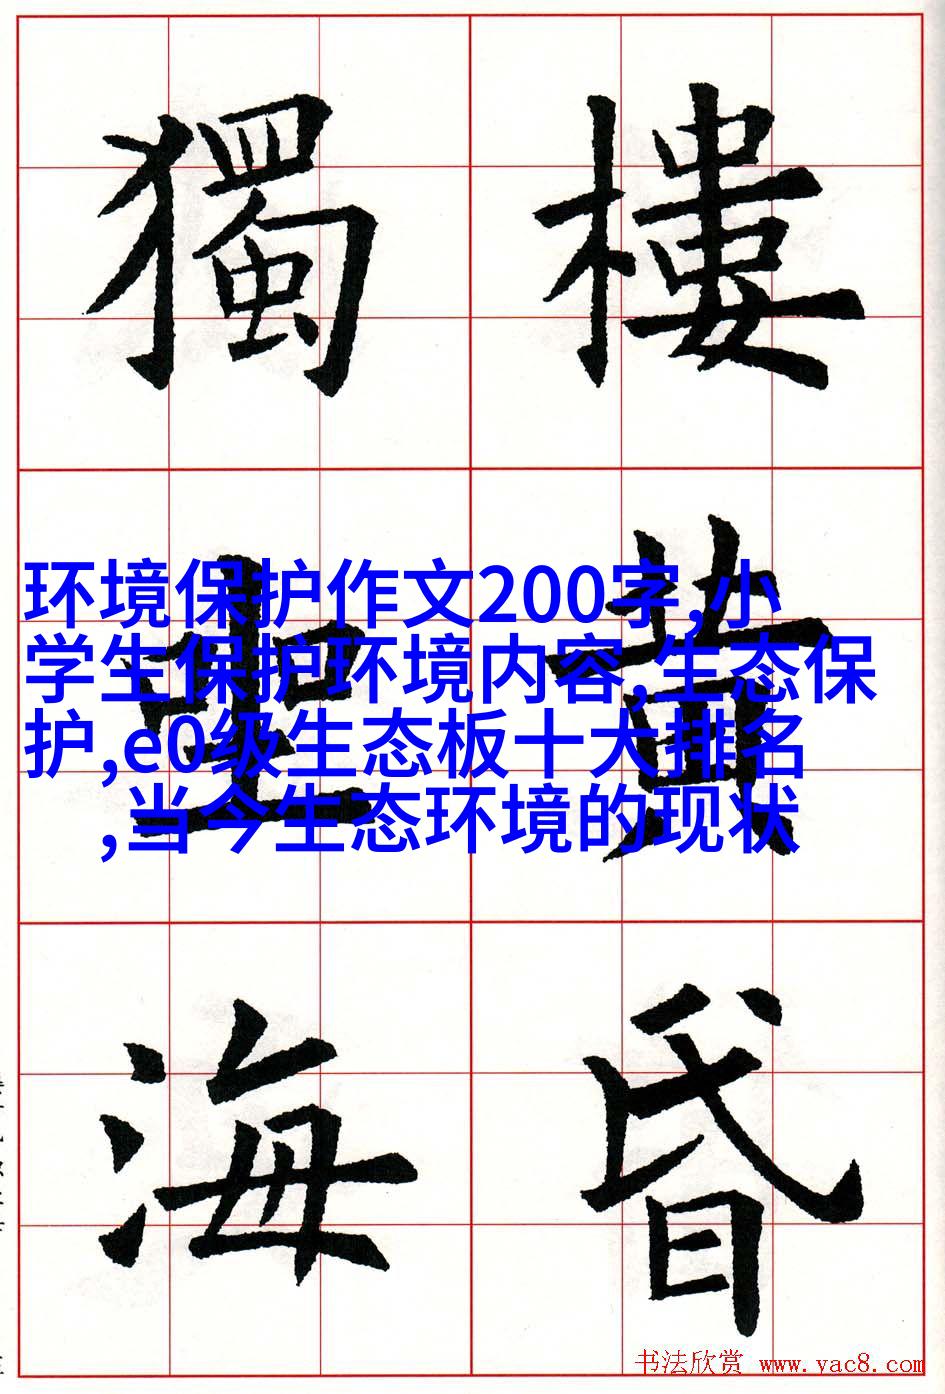 樓黄昏
獨海
环境保护作文200字,小
学生保护环境内容,生态保
护,e0级生态板十大排名
,当今生态环境的现状
书法欣赏 www.yac8.com